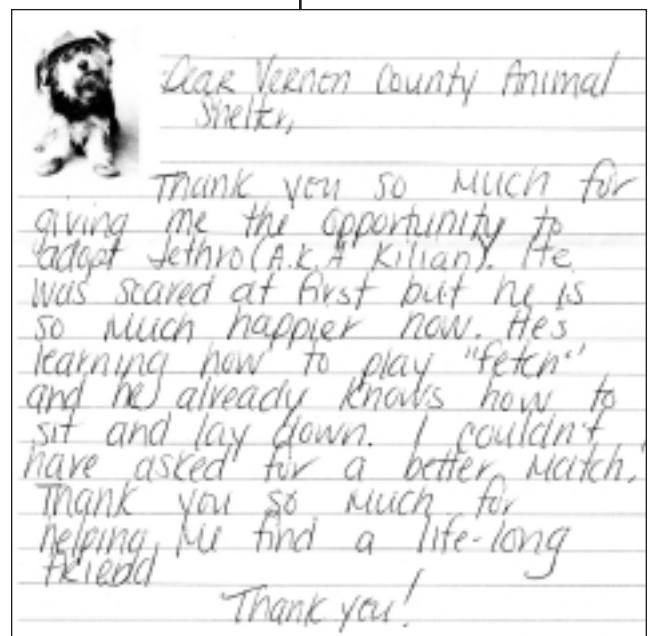 Dear Vernon County Animal
Shelter,
Thank you so much for
giving me the opportunity to
adopt Jethro (A.K.A Kilian). He
was scared at first but he is
so much happier now. He's
learning how to play "fetch"
and he already knows how to
sit and lay down. I couldn't
have asked for a better match.
Thank you so much for
helping me find a life-long
friend
Thank you!